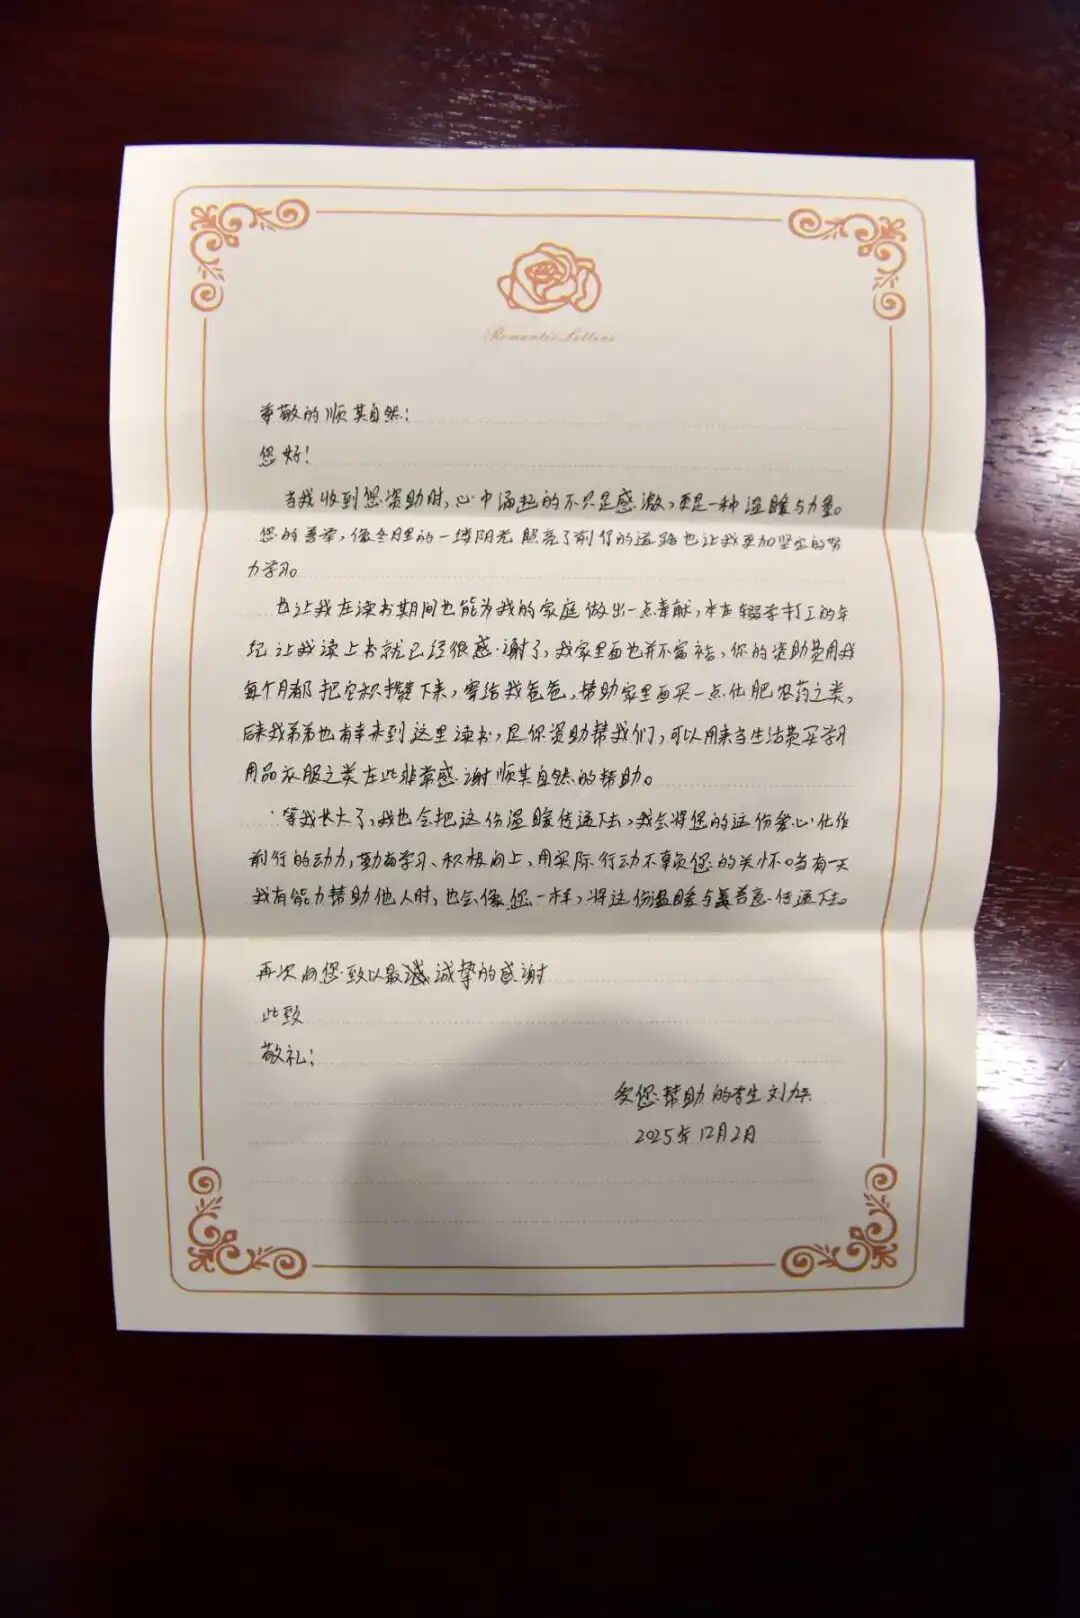 Romantic Letters
尊敬的顺其自然:
您好!
当我收到您资助时,心中涌起的不只是感激,更是一种温暖与力量。
您的善举,像冬日里的一缕阳光照亮了前行的道路也让我更加坚定的努
力学习。
也让我在读书期间也能为我的家庭做出一点奉献,本在辍学打工的年
纪让我读上书就已经很感谢了,我家里面也并不富裕,你的资助费用我
每个月都把它积攒下来,寄给我爸爸,帮助家里面买一点化肥农药之类,
后来我弟弟也有幸来到这里读书,是你资助帮我们,可以用来当生活费买学习
用品衣服之类在此非常感谢顺其自然的帮助。
等我长大了,我也会把这份温暖传递下去,我会将您的这份爱心化作
前行的动力,勤奋学习、积极向上,用实际行动不辜负您的关怀。当有一天
我有能力帮助他人时,也会像您一样,将这份温暖与善意传递下去。
再次向您致以最诚挚的感谢
此致
敬礼!
受您帮助的学生刘
2025年12月2日